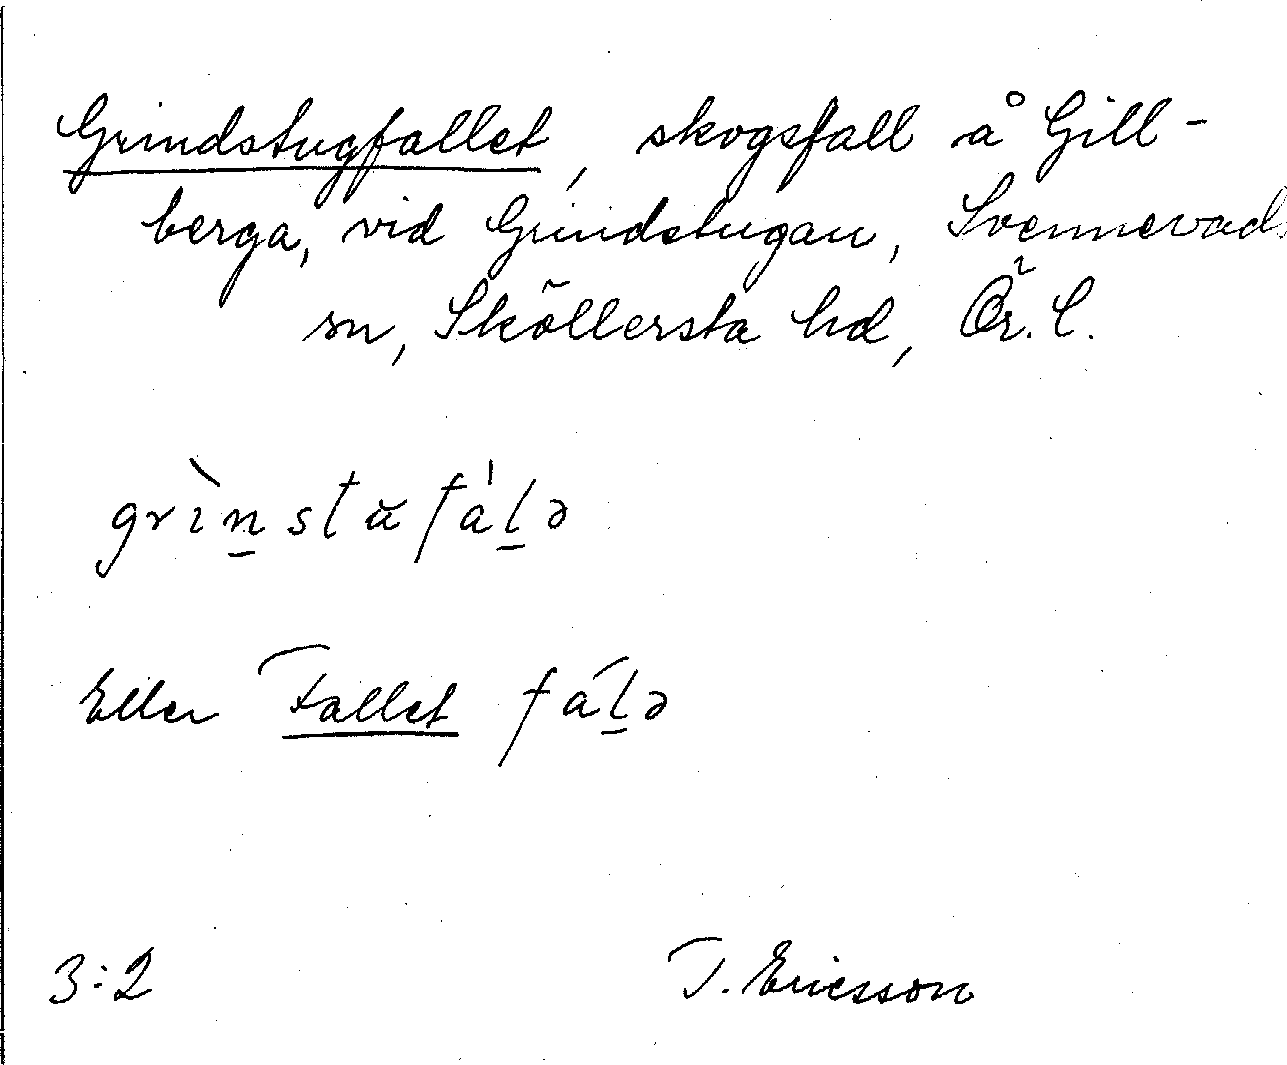 Grindstugfallet, skogsfall å Gill-
berga, vid Grindstugan, Svennevads
sn, Sköllersta hd, Ör. l.
grìn̲stŭfàl̲ə
Eller Fallet fál̲ə
3:2 T. Ericsson